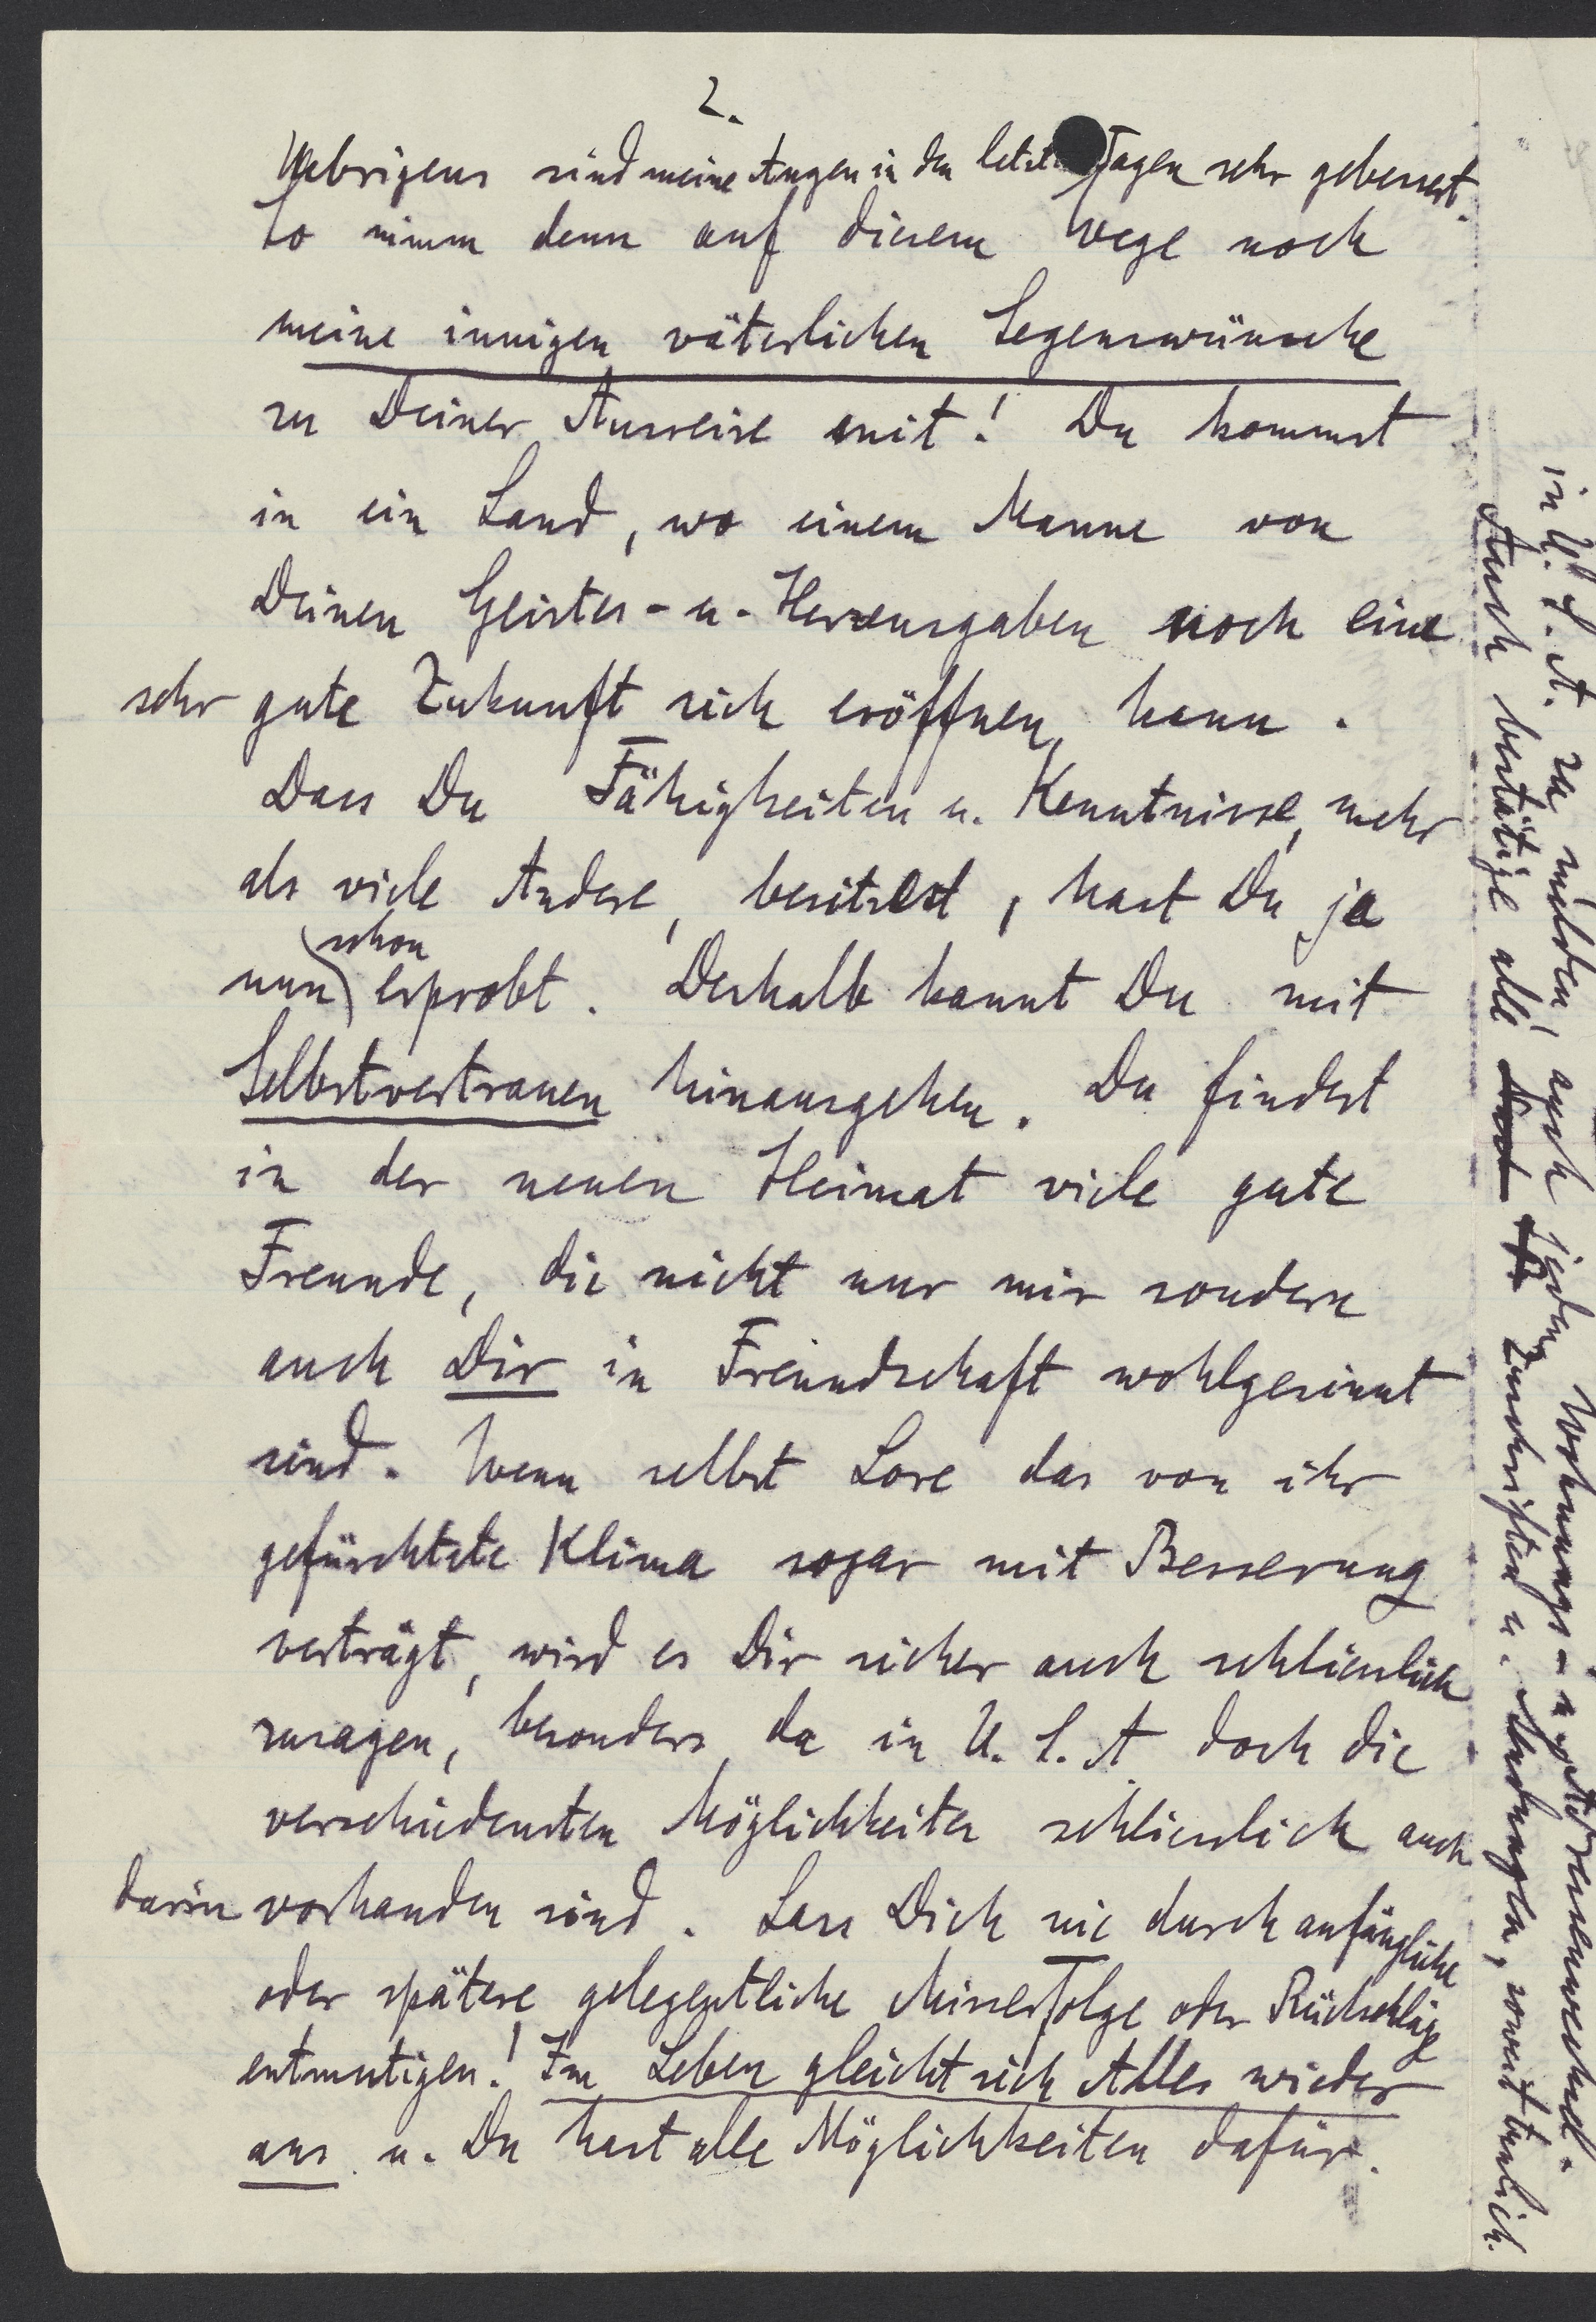 2.
Uebrigens sind meine Augen in den letzten Tagen sehr gebessert.
So nimm denn auf diesem Wege noch
meine innigen väterlichen Segenswünsche
zu Deiner Ausreise mit! Du kommst
in ein Land, wo einem Manne von
Deinen Geistes- u. Herzensgaben noch eine
sehr gute Zukunft sich eröffnen kann.
Dass Du Fähigkeiten u. Kenntnisse, mehr
als viele Andere, besitzest, hast Du ja
nun schon erprobt. Deshalb kannst Du mit
Selbstvertrauen hinausgehen. Du findest
in der neuen Heimat viele gute
Freunde, die nicht nur mir sondern
auch Dir in Freundschaft wohlgesinnt
sind. Wenn selbst Lore das von ihr
gefürchtete Klima sogar mit Besserung
verträgt, wird es Dir sicher auch schliesslich
zusagen, besonders da in U.S.A doch die
verschiedensten Möglichkeiten schliesslich auch
darin vorhanden sind. Lass Dich nie durch anfängliche
oder spätere gelegentliche Misserfolge oder Rückschläge
entmutigen! Im Leben gleicht sich Alles wieder
aus u. Du hast alle Möglichkeiten dafür.
in U.S.A. zu melden, auch jeden Wohnungs- u. Adressenwechsel.
Auch bestätige alle Zuschriften u. Meldungen, soweit tunlich.